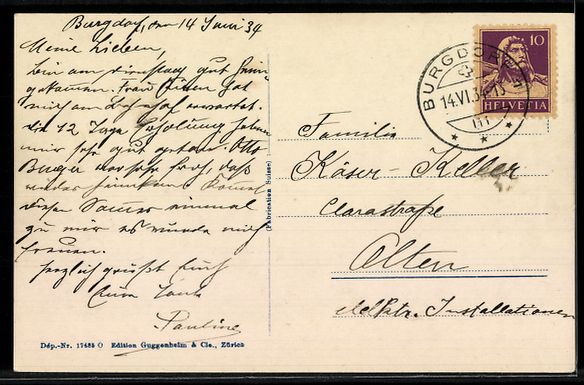 Burgdorf, den 14 Juni 34
Meine Lieben,
bin am Dienstag gut heim
gekommen. Frau hat
mich am Bahnhof erwartet.
die 12 Tage Erholung haben
mir sehr gut getan. Otto
war sehr froh, daß
diesen Sommer einmal
zu mir es würde mich
freuen.
herzlich grüßt Euch
Eure Tante
Pauline
Dép.-Nr. 17485 O Edition Guggenheim & Cie., Zürich
(Fabrication Suisse)
10
HELVETIA
BURGDORF
14.VI.34
Familie
Käser-Keller
Clarastraße
Olten
Elektr. Installationen